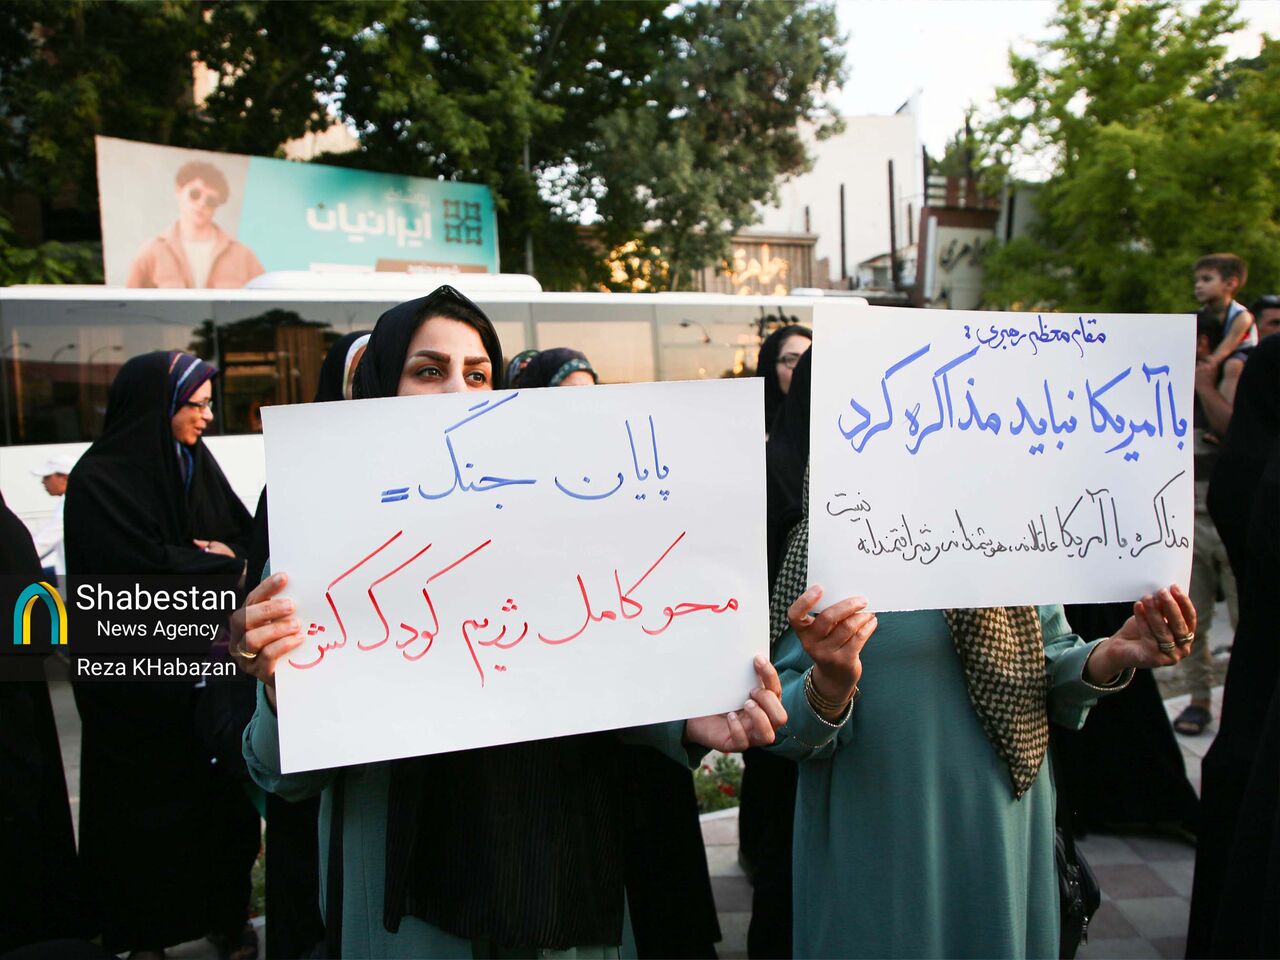 ایرانیان
پایان جنگ =
محو کامل رژیم کودک کش
مقام معظم رهبری :
با آمریکا نباید مذاکره کرد
مذاکره با آمریکا عاقلانه، هوشمندانه و شرافتمندانه نیست
Shabestan
News Agency
Reza KHabazan